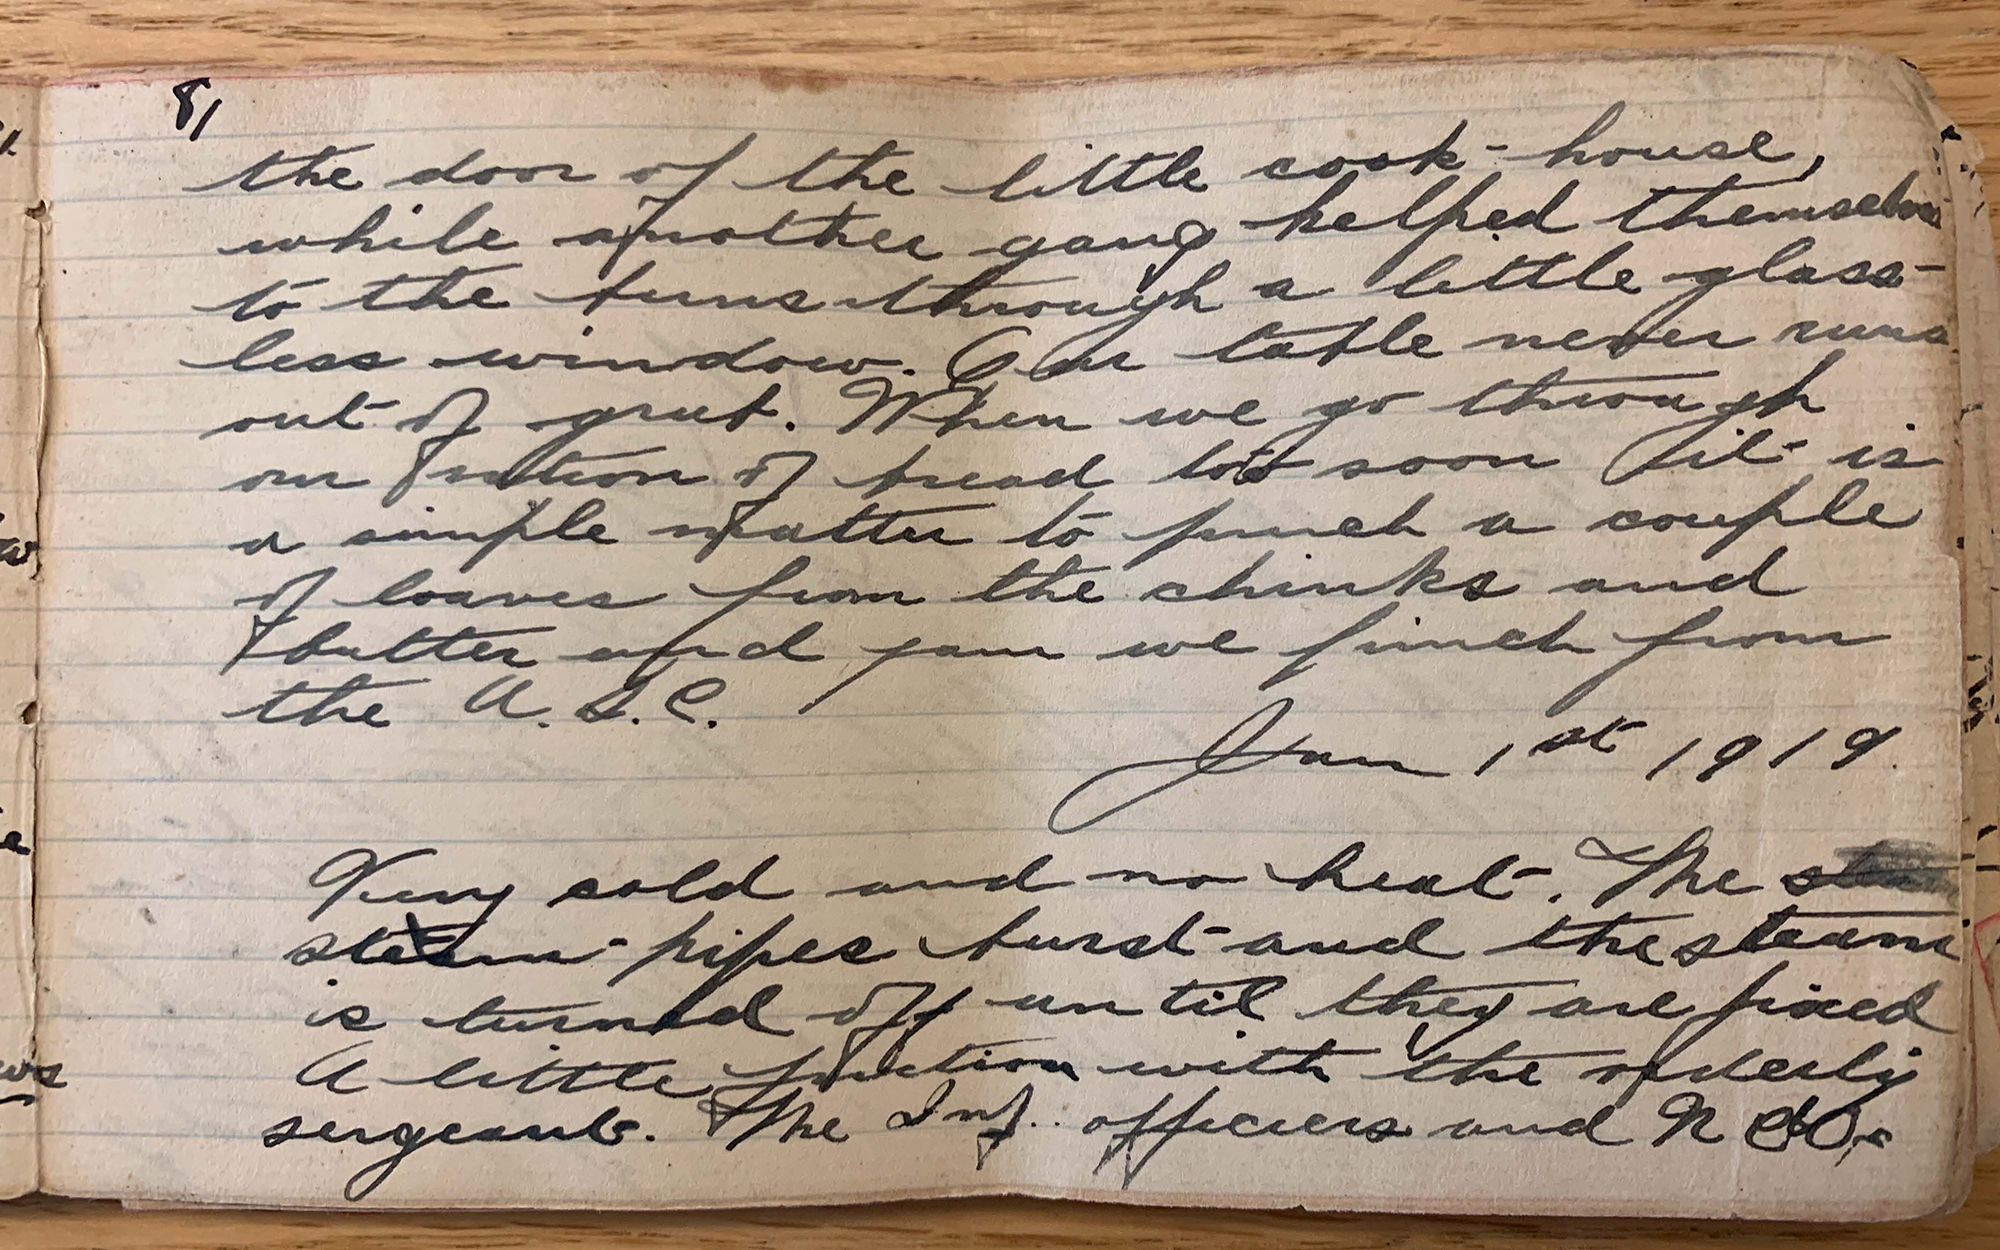 81
the door of the little cook-house,
while another gang helped themselves
to the buns through a little glass-
less window. Our table never runs
out of grub. When we go through
our ration of bread too soon it is
a simple matter to pinch a couple
of loaves from the chinks and
butter and jam we pinch from
the A.S.C.
Jan 1st 1919.
Very cold and no heat. The
steam-pipes burst and the steam
is turned off until they are fixed
A little friction with the orderly
sergeants. The Inf. officers and N C O s
ws